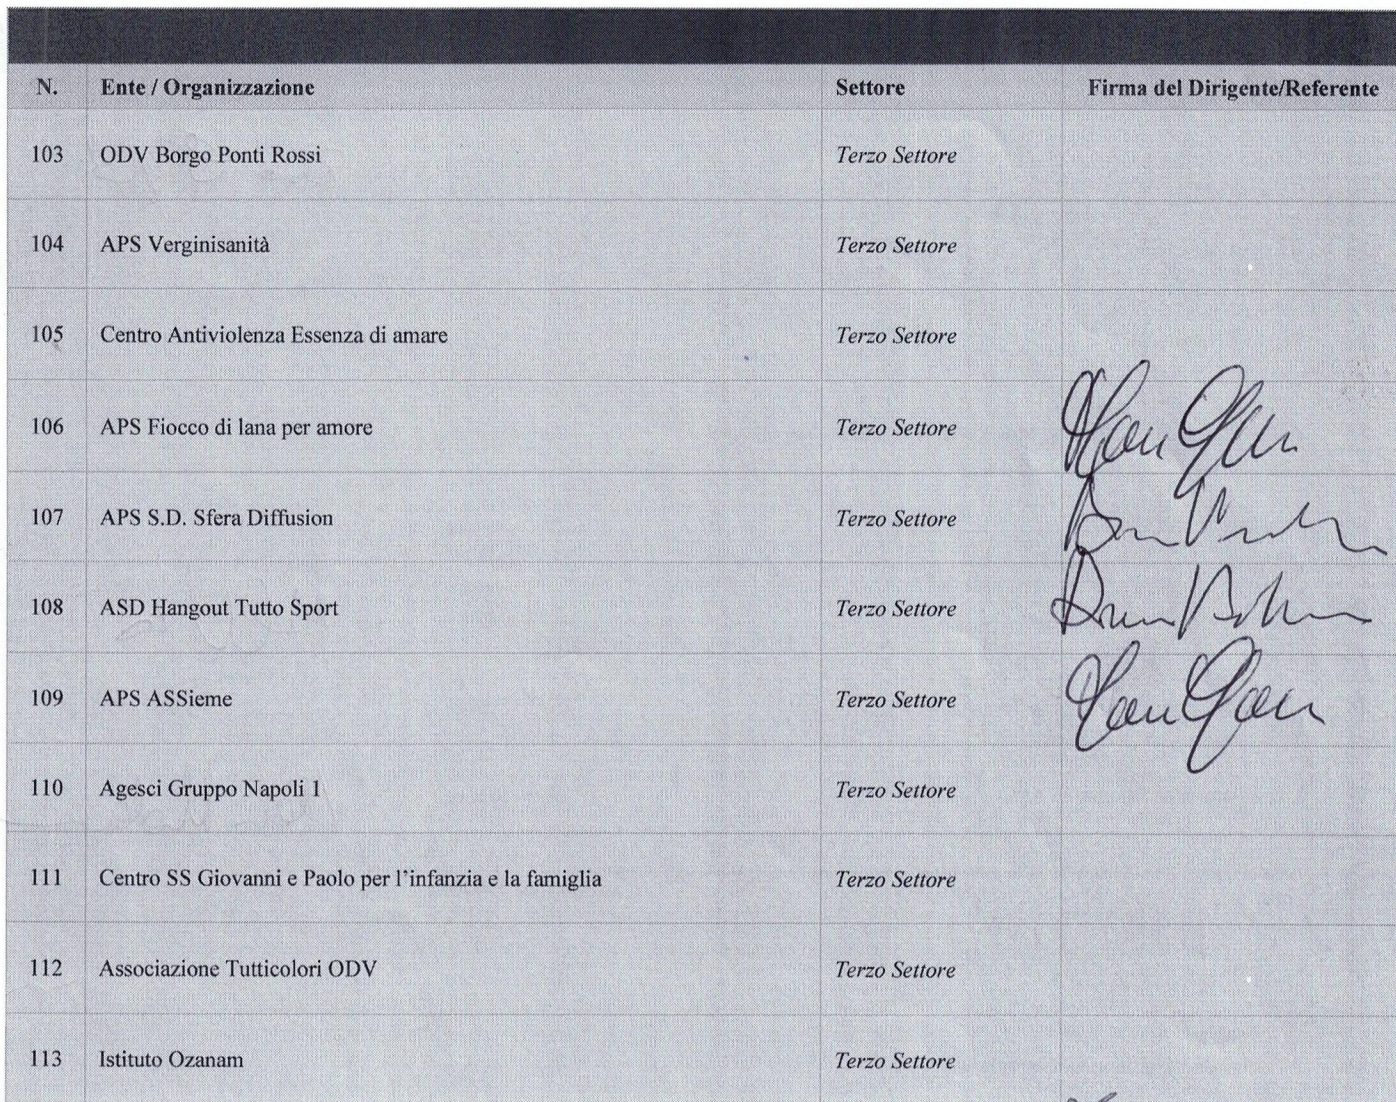 N. Ente / Organizzazione Settore Firma del Dirigente/Referente
103 ODV Borgo Ponti Rossi Terzo Settore
104 APS Verginisanità Terzo Settore
105 Centro Antiviolenza Essenza di amare Terzo Settore
106 APS Fiocco di lana per amore Terzo Settore
107 APS S.D. Sfera Diffusion Terzo Settore
108 ASD Hangout Tutto Sport Terzo Settore
109 APS ASSieme Terzo Settore
110 Agesci Gruppo Napoli 1 Terzo Settore
111 Centro SS Giovanni e Paolo per l’infanzia e la famiglia Terzo Settore
112 Associazione Tutticolori ODV Terzo Settore
113 Istituto Ozanam Terzo Settore